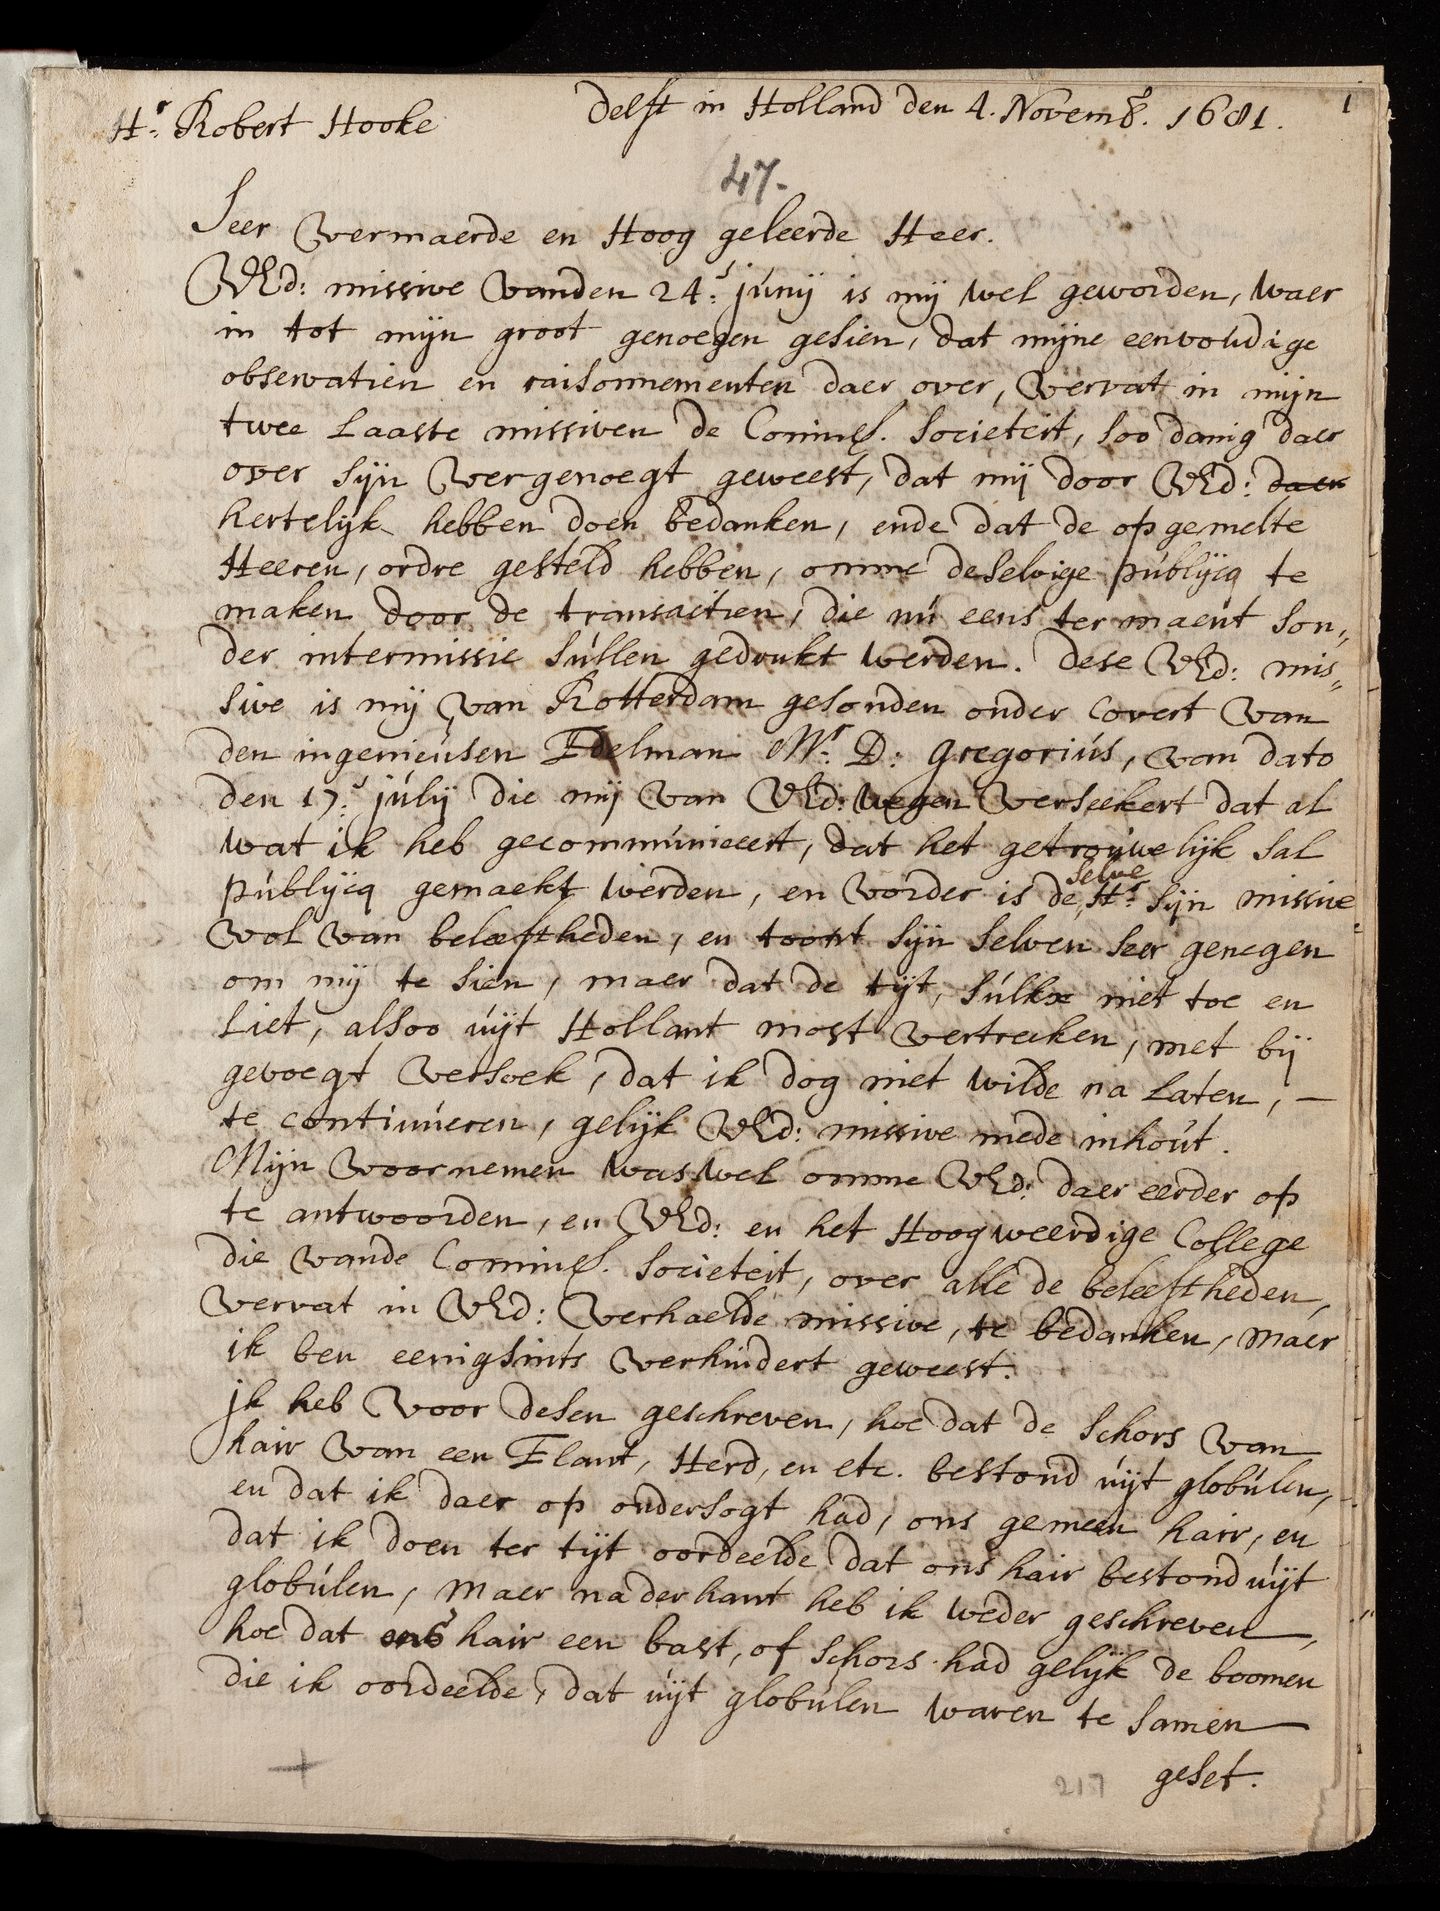 Hr. Robert Hooke
Delft in Holland den 4. Novemb. 1681.
1
47.
Seer vermaerde en Hoog geleerde Heer.
VEd: missive vanden 24: junij is mij wel geworden, waer
in tot mijn groot genoegen gesien, dat mijne eenvoudige
observatien en raisonnementen daer over, vervat in mijn
twee laaste missiven de Conincl. Societeit, soo danig daer
over sijn vergenoegt geweest, dat mij door VEd: daer
hertelijk hebben doen bedanken, ende dat de opgemelte
Heeren, ordre gesteld hebben, omme deselvige publijcq te
maken door de transactien, die nu eens ter maent son„
der intermissie sullen gedrukt werden. dese VEd: mis„
sive is mij van Rotterdam gesonden onder Covert van
den ingenieusen Edelman Mr. D: Gregorius, van dato
den 17: julij die mij van VEd: wegen verseekert dat al
wat ik heb gecommuniceert, dat het getrouwelijk sal
publijcq gemaekt werden, en vorder is de selve Hr. sijn missive
vol van beleeftheden, en toont sijn selven seer genegen
om mij te sien, maer dat de tijt, sulkx niet toe en
liet, alsoo uijt Hollant most vertrecken, met bij
gevoegt versoek, dat ik dog niet wilde na laten, —
te continueren, gelijk VEd: missive mede inhout.
Mijn voornemen was wel omme VEd: daer eerder op
te antwoorden, en VEd: en het Hoogweerdige College
die vande Conincl. Societeit, over alle de beleeftheden,
vervat in VEd: verhaelde missive, te bedanken, maer
ik ben eenigsints verhindert geweest.
jk heb voor desen geschreven, hoe dat de schors van
hair van een Elant, Herd, en etc. bestond uijt globulen,
en dat ik daer op ondersogt had, ons gemeen hair, en
dat ik doen ter tijt oordeelde dat ons hair bestond uijt
globulen, maer naderhant heb ik weder geschreven,
hoe dat ons hair een bast, of schors had gelijk de boomen
die ik oordeelde, dat uijt globulen waren te samen
geset.
217